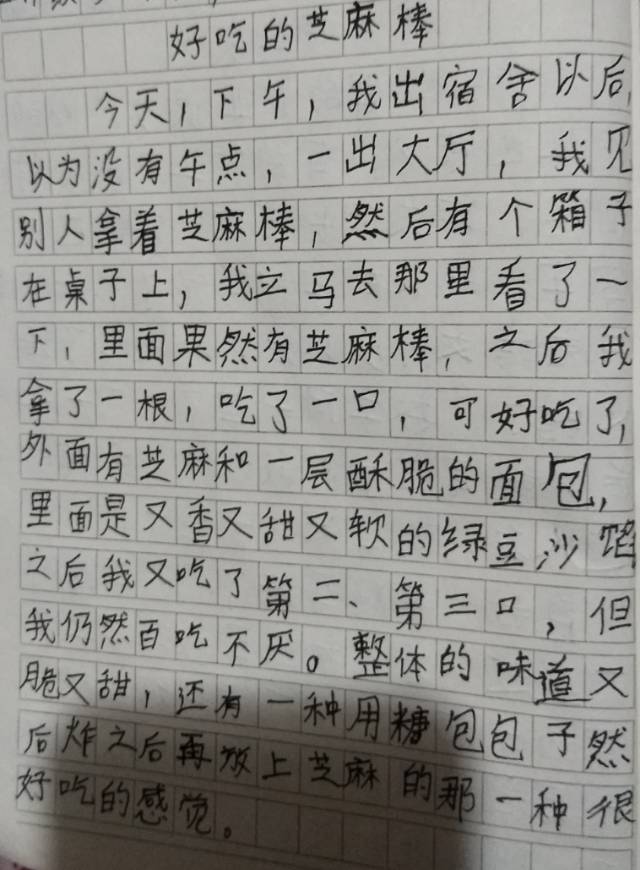 好吃的芝麻棒
今天,下午,我出宿舍以后,
以为没有午点,一出大厅,我见
别人拿着芝麻棒,然后有个箱子
在桌子上,我立马去那里看了一
下,里面果然有芝麻棒,之后我
拿了一根,吃了一口,可好吃了,
外面有芝麻和一层酥脆的面包,
里面是又香又甜又软的绿豆沙馅
之后我又吃了第二、第三口,但
我仍然百吃不厌。整体的味道又
脆又甜,还有一种用糖包包子然
后炸之后再放上芝麻的那一种很
好吃的感觉。